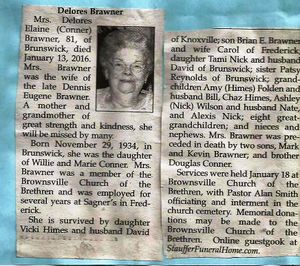 Delores Brawner
Mrs. Delores
Elaine (Conner)
Brawner, 81, of
Brunswick, died
January 13, 2016.
Mrs. Brawner
was the wife of
the late Dennis
Eugene Brawner.
A mother and
grandmother of
great strength and kindness, she
will be missed by many.
Born November 29, 1934, in
Brunswick, she was the daughter
of Willie and Marie Conner. Mrs.
Brawner was a member of the
Brownsville Church of the
Brethren and was employed for
several years at Sagner's in Fred-
erick.
She is survived by daughter
Vicki Himes and husband David
of Knoxville; son Brian E. Brawner
and wife Carol of Frederick;
daughter Tami Nick and husband
David of Brunswick; sister Patsy
Reynolds of Brunswick; grand-
children Amy (Himes) Folden and
husband Bill, Chaz Himes, Ashley
(Nick) Wilson and husband Nate,
and Alexis Nick; eight great-
grandchildren; and nieces and
nephews. Mrs. Brawner was pre-
ceded in death by two sons, Mark
and Kevin Brawner; and brother
Douglas Conner.
Services were held January 18 at
Brownsville Church of the
Brethren, with Pastor Alan Smith
officiating and interment in the
church cemetery. Memorial dona-
tions may be made to the
Brownsville Church of the
Brethren. Online guestbook at
StaufferFuneralHome.com.